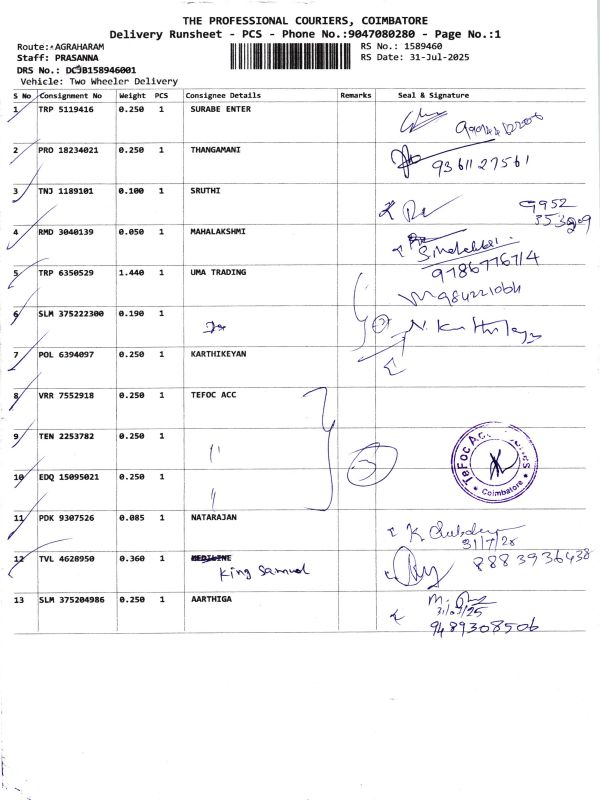 THE PROFESSIONAL COURIERS, COIMBATORE
Delivery Runsheet - PCS - Phone No.:9047080280 - Page No.:1
Route: AGRAHARAM
RS No.: 1589460
Staff: PRASANNA
RS Date: 31-Jul-2025
DRS No.: DC3B158946001
Vehicle: Two Wheeler Delivery
S No Consignment No Weight PCS Consignee Details Remarks Seal & Signature
1 TRP 5119416 0.250 1 SURABE ENTER
2 PRO 18234021 0.250 1 THANGAMANI
9361127561
3 TNJ 1189101 0.100 1 SRUTHI
9952
353209
4 RMD 3040139 0.050 1 MAHALAKSHMI
9786776714
5 TRP 6350529 1.440 1 UMA TRADING
6 SLM 375222300 0.190 1
7 POL 6394097 0.250 1 KARTHIKEYAN
8 VRR 7552918 0.250 1 TEFOC ACC
9 TEN 2253782 0.250 1 "
10 EDQ 15095021 0.250 1 "
3
TeFoc
Coimbatore
11 PDK 9307526 0.085 1 NATARAJAN
31/7/25
12 TVL 4628950 0.360 1 MEDILINE
King Samuel
8883936438
13 SLM 375204986 0.250 1 AARTHIGA
9489308506